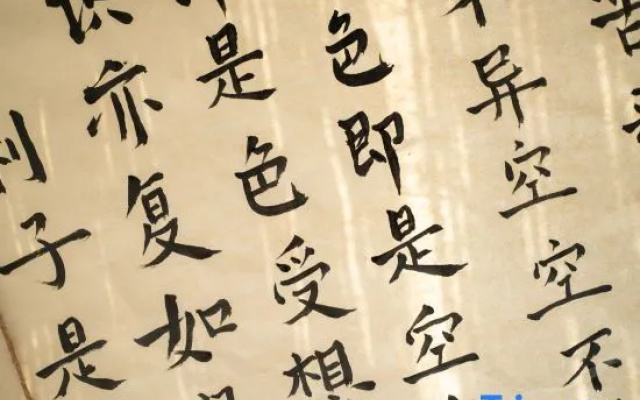 异空空不
色即是空
是色受想
识亦复如
利子是